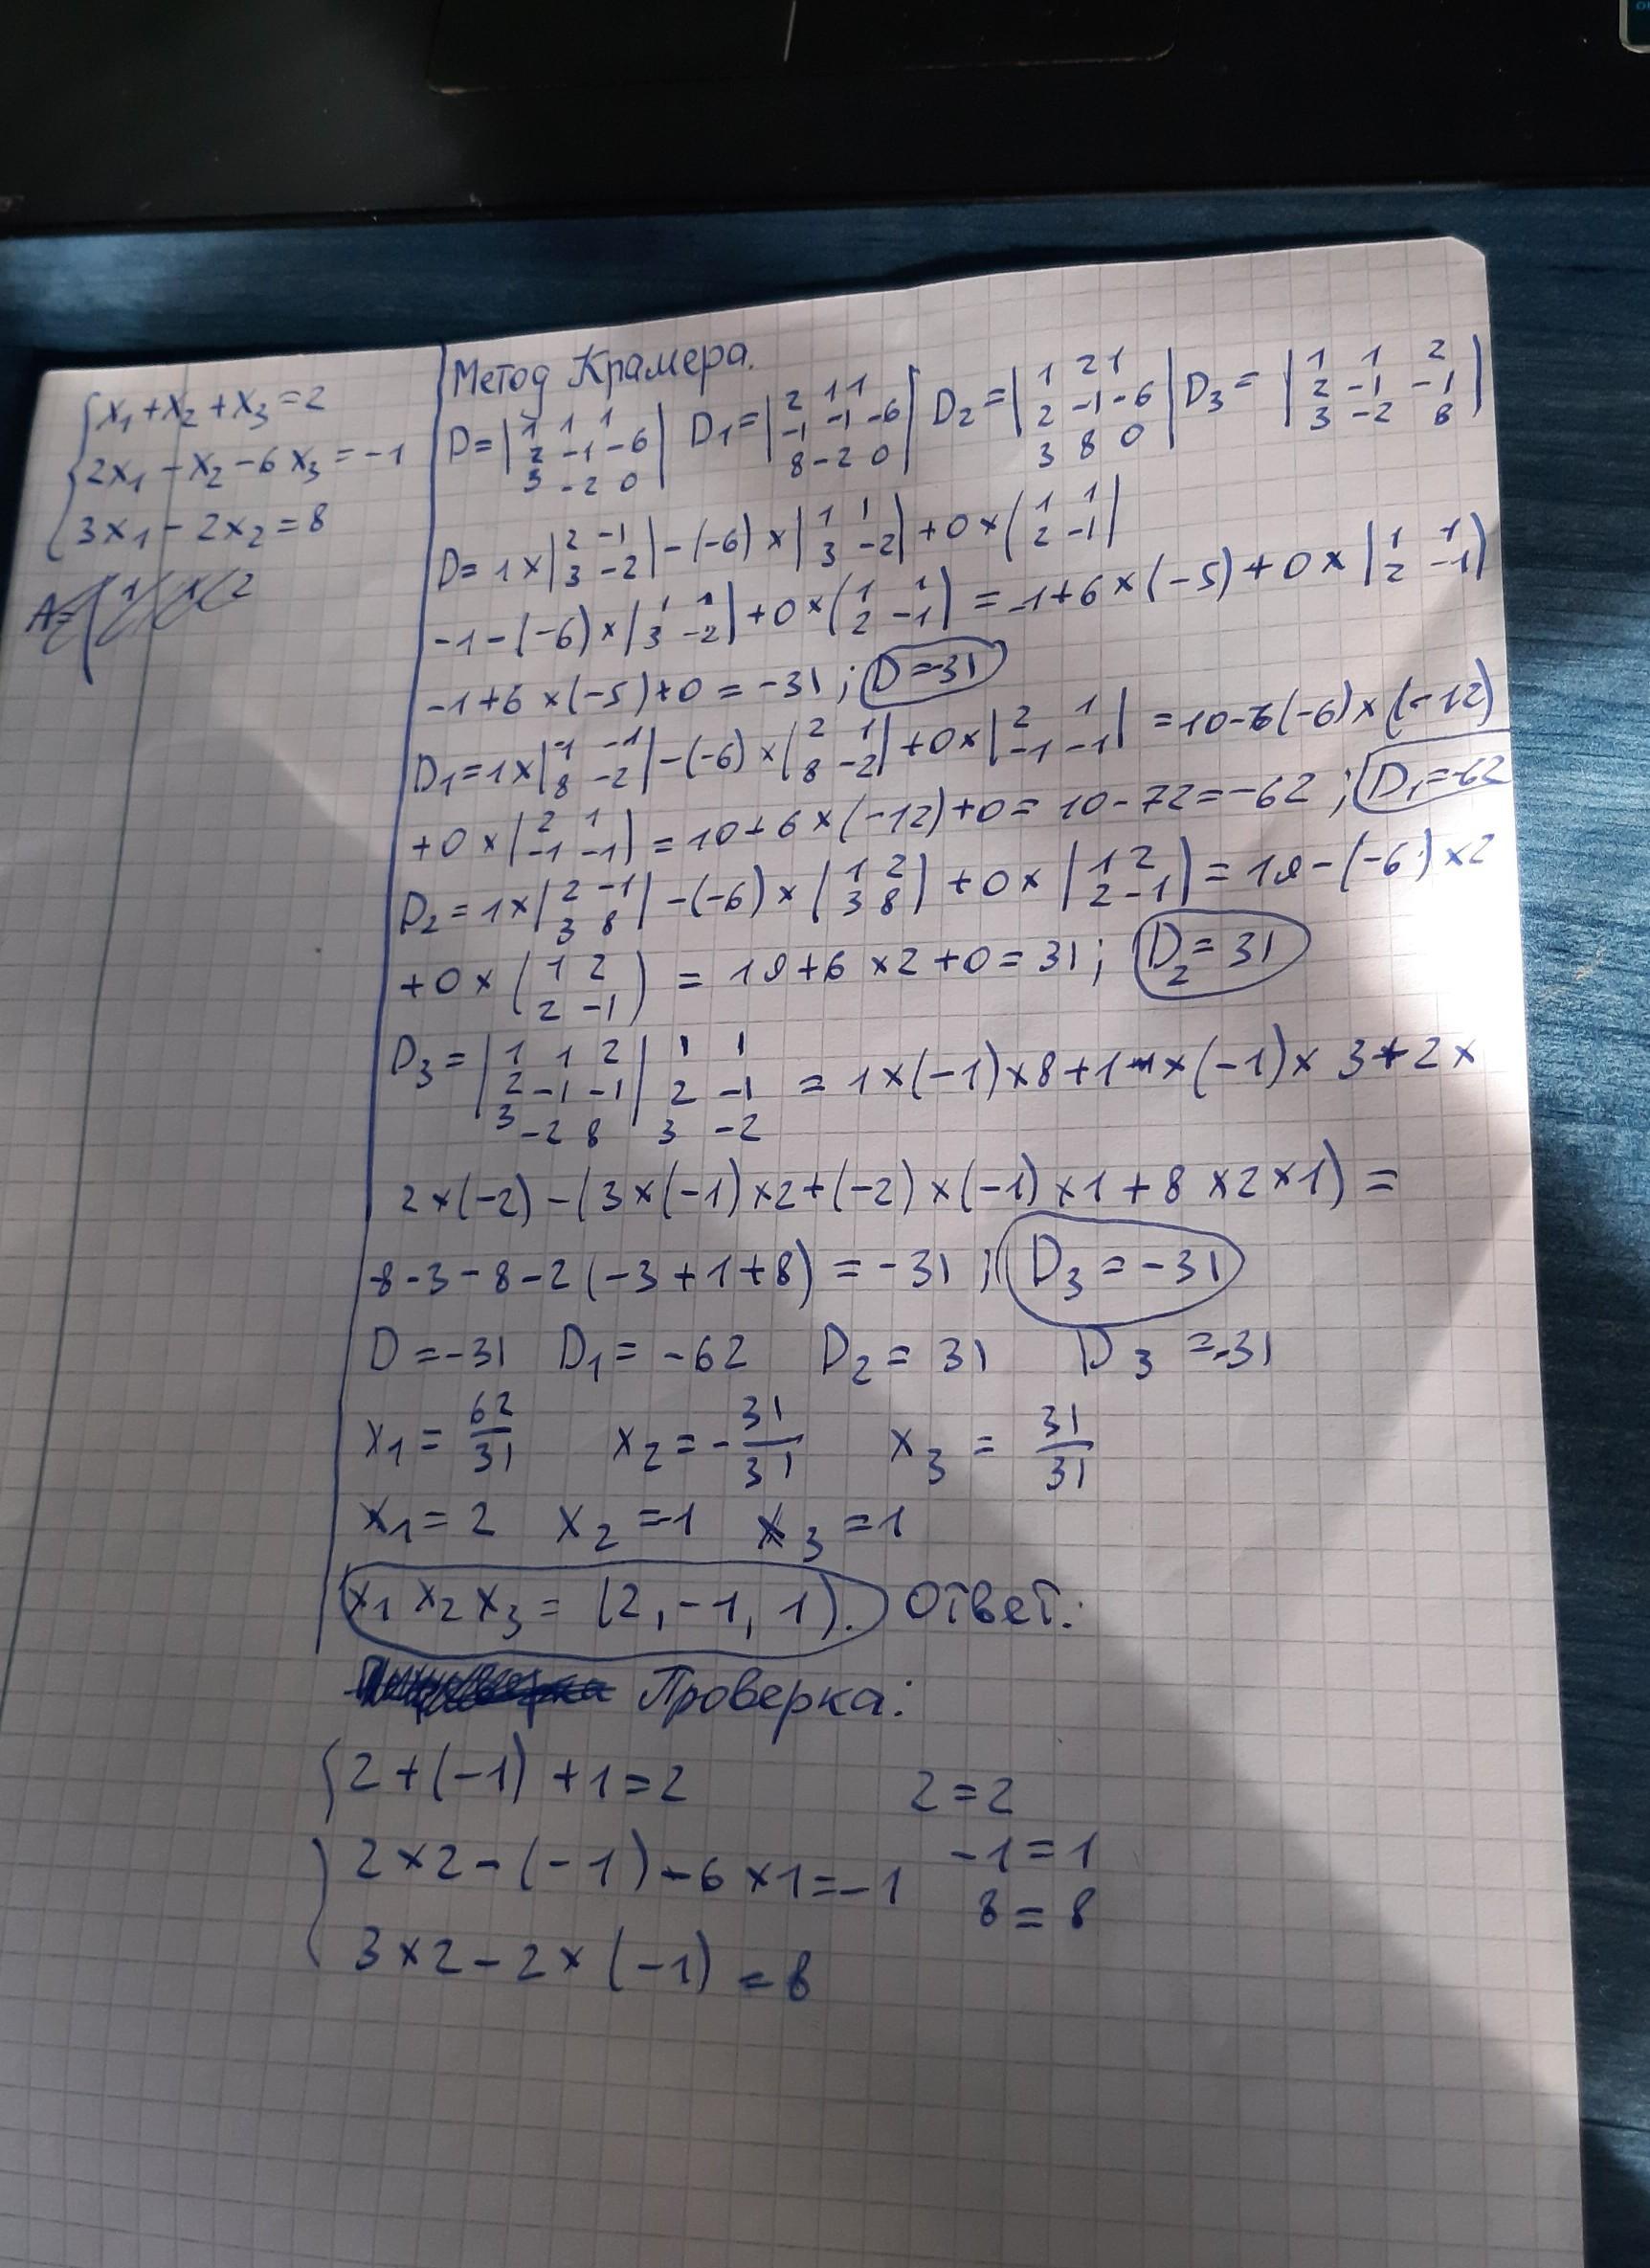 x₁+x₂+x₃=2
2x₁-x₂-6x₃=-1
3x₁-2x₂=8
Метод Крамера.
D=|1 1 1; 2 -1 -6; 3 -2 0| D₁=|2 1 1; -1 -1 -6; 8 -2 0| D₂=|1 2 1; 2 -1 -6; 3 8 0| D₃=|1 1 2; 2 -1 -1; 3 -2 8|
D=1×|2 -1; 3 -2|-(-6)×|1 1; 3 -2|+0×(1 1; 2 -1|
-1-(-6)×|1 1; 3 -2|+0×(1 1; 2 -1|=-1+6×(-5)+0×|1 1; 2 -1)
-1+6×(-5)+0=-31; D=-31
D₁=1×|-1 -1; 8 -2|-(-6)×(2 1; 8 -2|+0×|2 1; -1 -1|=10-(-6)×(-12)
+0×(2 1; -1 -1)=10+6×(-12)+0=10-72=-62; D₁=-62
D₂=1×|2 -1; 3 8|-(-6)×(1 2; 3 8)+0×|1 2; 2 -1)=19-(-6)×2
+0×(1 2; 2 -1)=19+6×2+0=31; D₂=31
D₃=|1 1 2; 2 -1 -1; 3 -2 8| 1 1; 2 -1; 3 -2 =1×(-1)×8+1×(-1)×3+2×
2×(-2)-(3×(-1)×2+(-2)×(-1)×1+8×2×1)=
-8-3-8-2(-3+1+8)=-31; D₃=-31
D=-31 D₁=-62 D₂=31 D₃=-31
x₁=62/31 x₂=-31/31 x₃=31/31
x₁=2 x₂=-1 x₃=1
x₁ x₂ x₃=(2,-1,1). Ответ:
Проверка:
2+(-1)+1=2 2=2
2×2-(-1)-6×1=-1 -1=1
3×2-2×(-1)=8 8=8